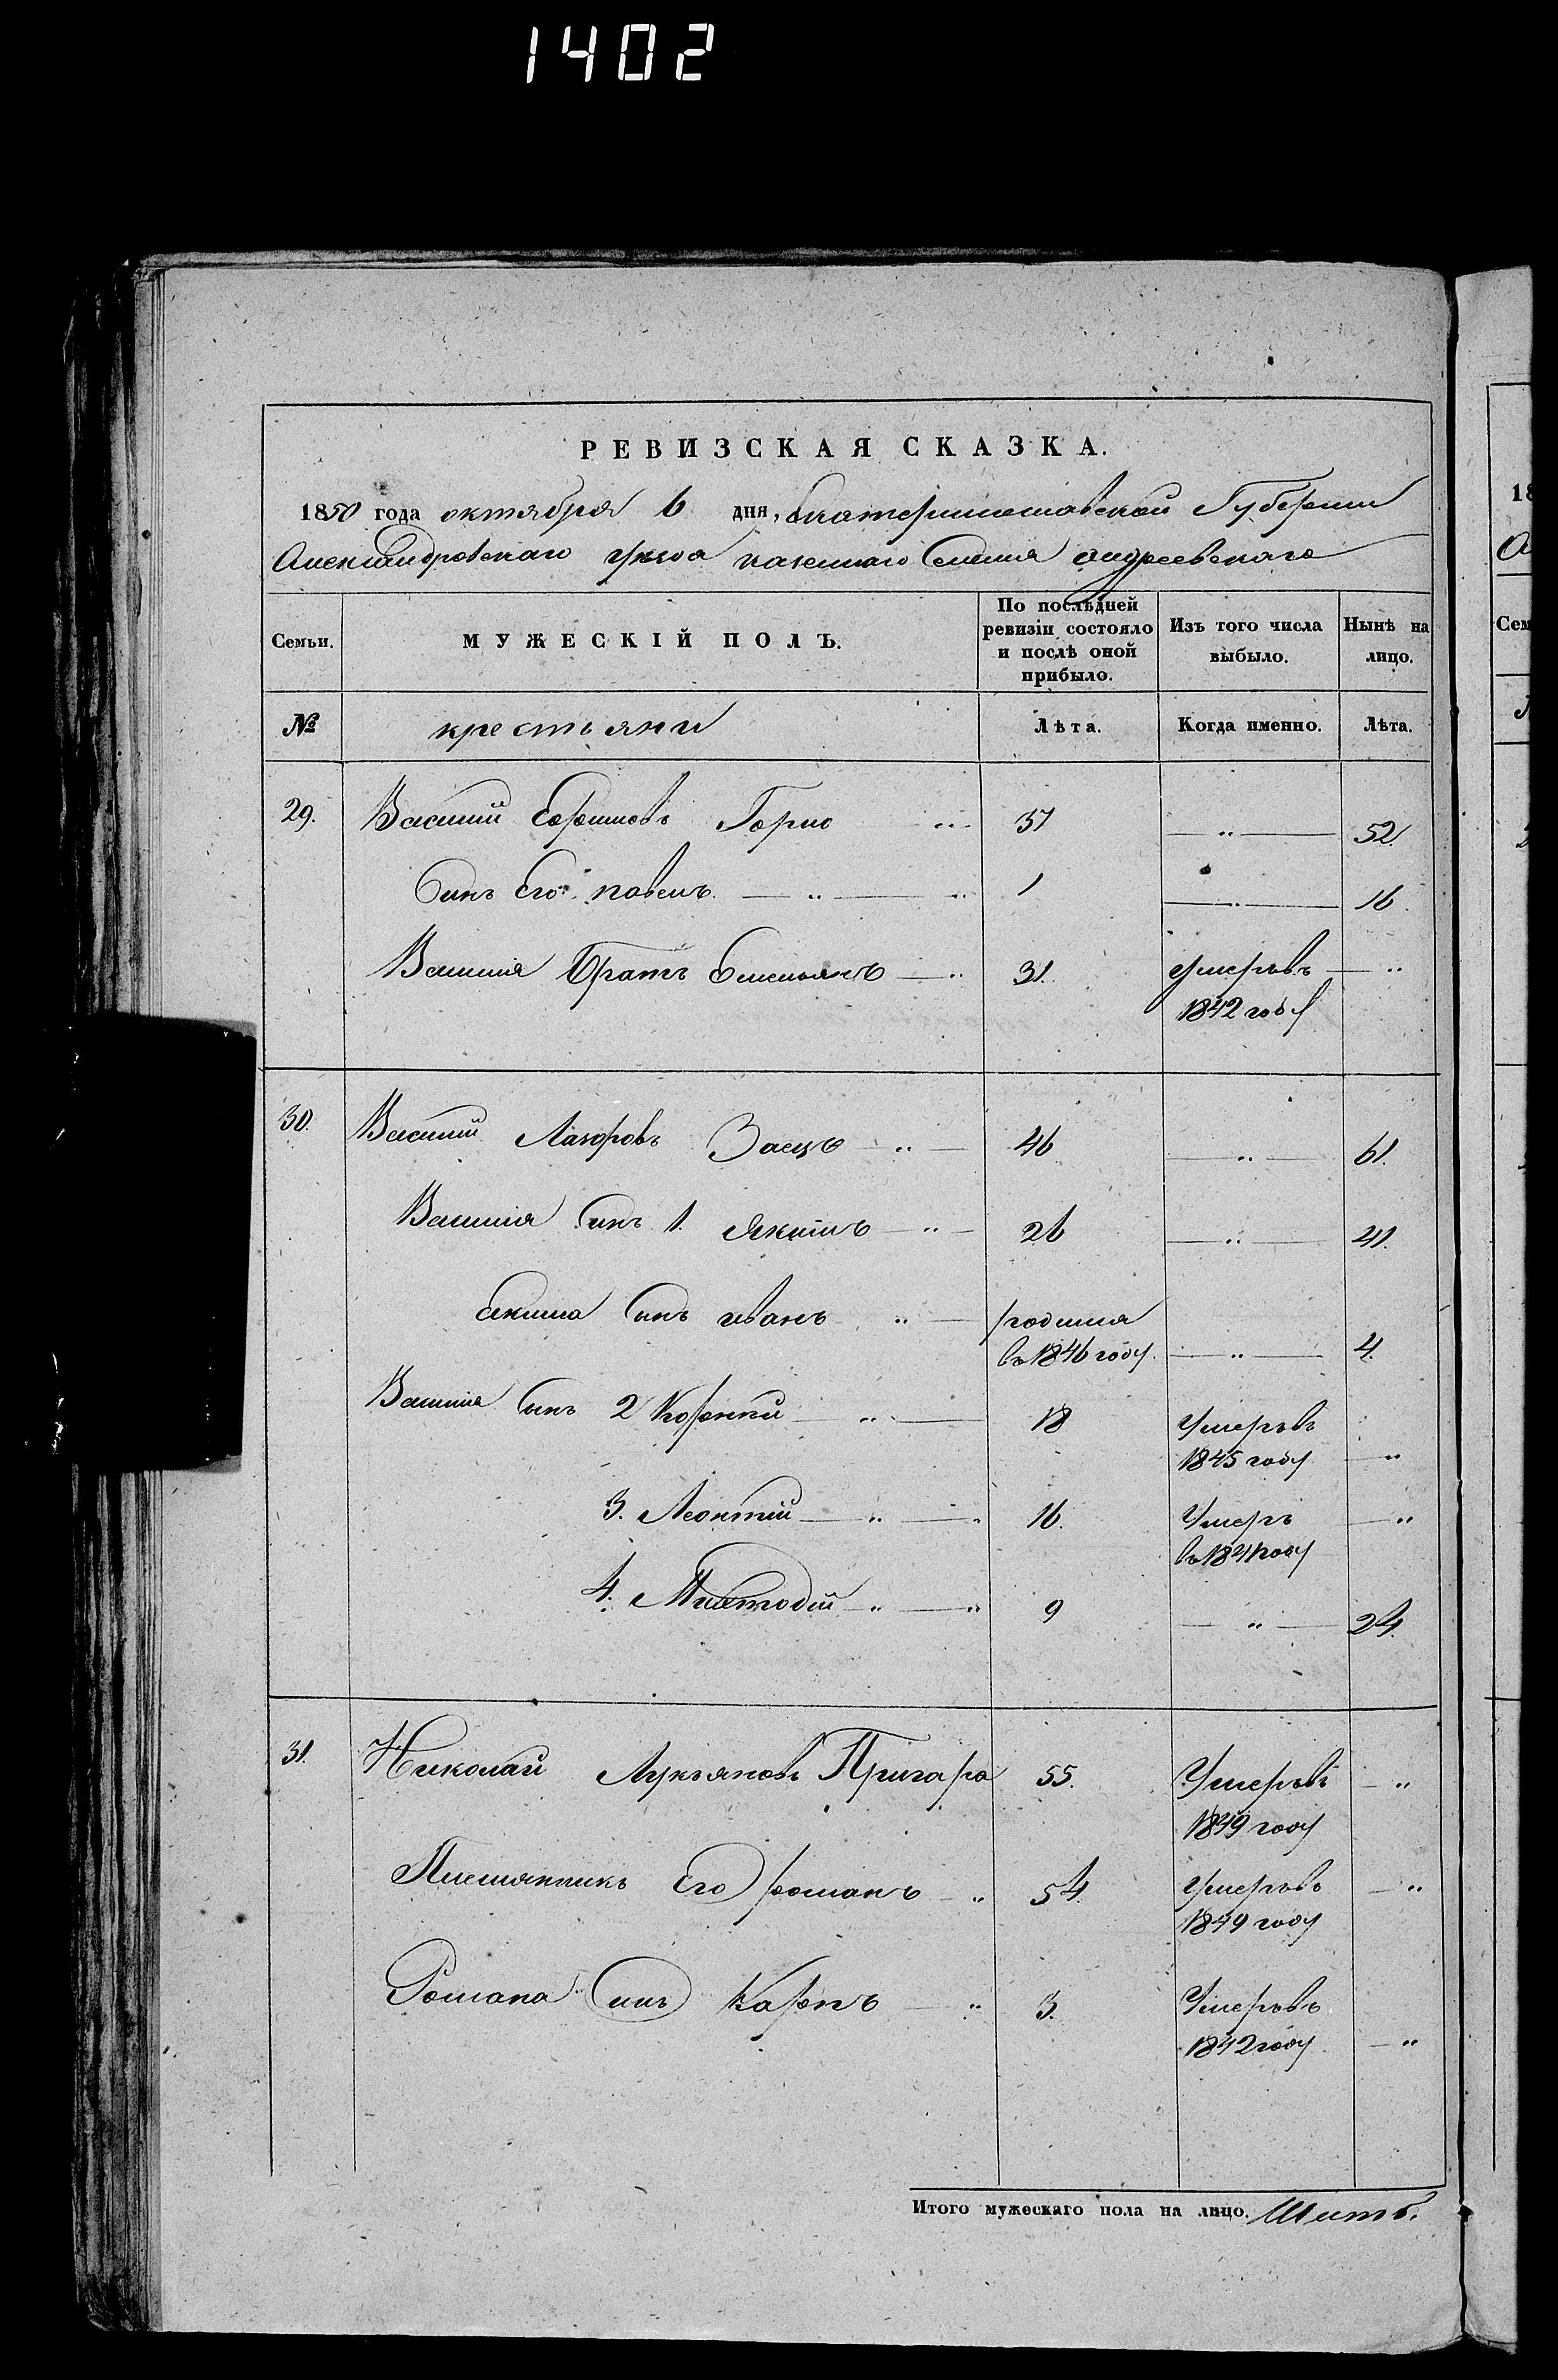 1402
РЕВИЗСКАЯ СКАЗКА.
1850 года октября 6 дня, Екатеринославской Губернии
Александровского уезда казенного Селения андреевского
Семьи. МУЖЕСКІЙ ПОЛЪ. По послѣдней ревизіи состояло и послѣ оной прибыло. Изъ того числа выбыло. Нынѣ на лицо.
№ крестьяни Лѣта. Когда именно. Лѣта.
29. Василий Ефимовъ 37 — „ — 52.
Сынъ Его павелъ. — „ — 1 — „ — 16.
Василия Братъ Емельянъ — „ 31. Умеръвъ — „
1842 году
30. Василий Лазоровъ Заецъ — „ — 46 — „ — 61.
Василия Сынъ 1. Якимъ — „ — 26 — „ — 41.
Якима Сынъ иванъ „ — родился
въ 1846 году. — „ — 4.
Василия Сынъ 2 Корнѣй — „ — 18 Умеръвъ
1845 году — „
3. Леонтий — „ — 16. Умеръ — „
въ 1841 году
4. Мифтодий — „ — „ 9 — „ — 24.
31. Николай Лукьяновъ Пригара 55. Умеръвъ — „
1849 году
Племянникъ Его романъ — „ 54. Умеръвъ — „
1849 году
Романа Сынъ Карпъ — „ 3. Умеръвъ
1842 году — „
Итого мужескаго пола на лицо.
18
Сем